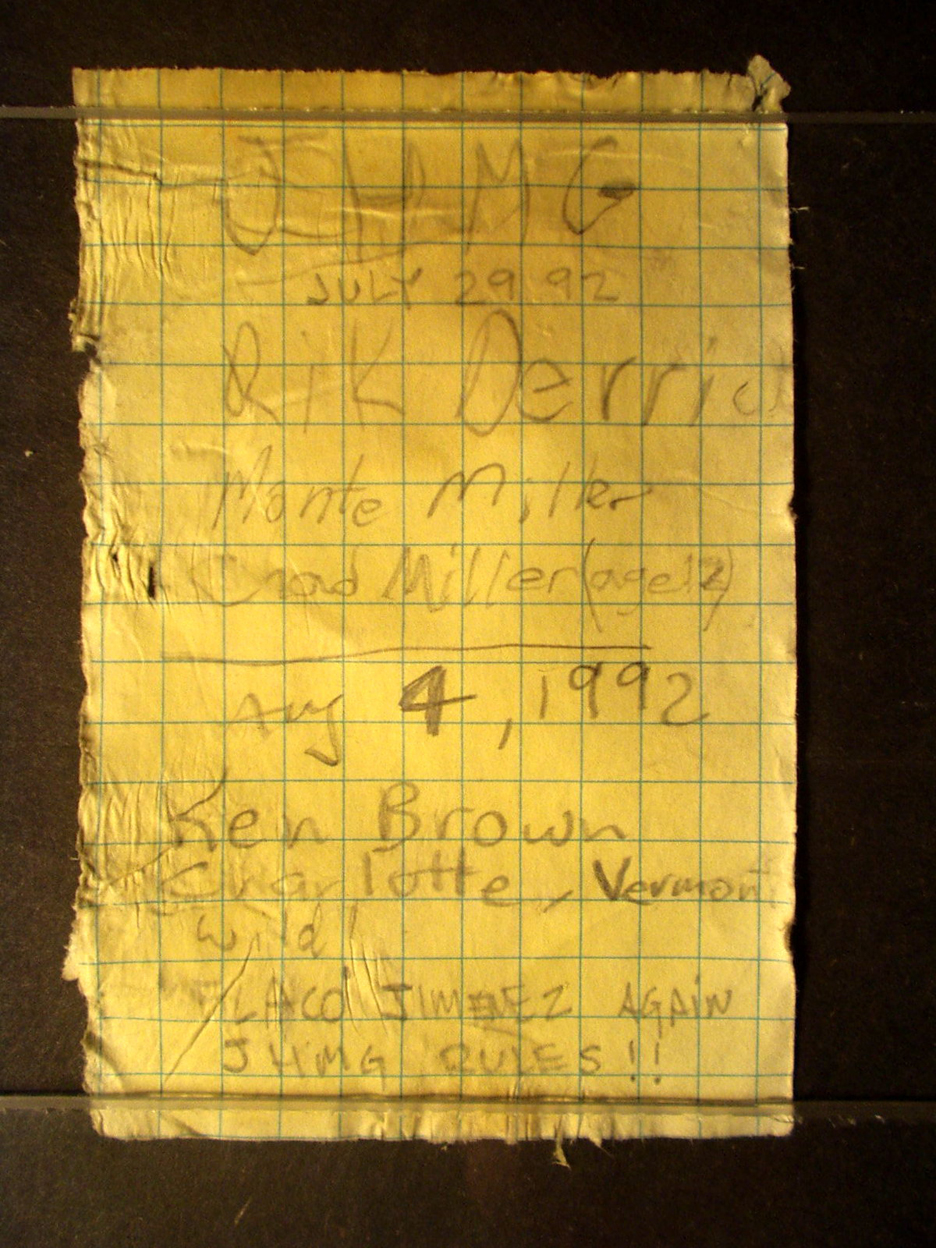 JHMG
JULY 29 92
Rik Derrick
Monte Miller
Chad Miller (age 12)
Aug 4, 1992
Ken Brown
Charlotte, Vermont
Wild!
FLACO JIMENEZ AGAIN
JHMG RULES!!